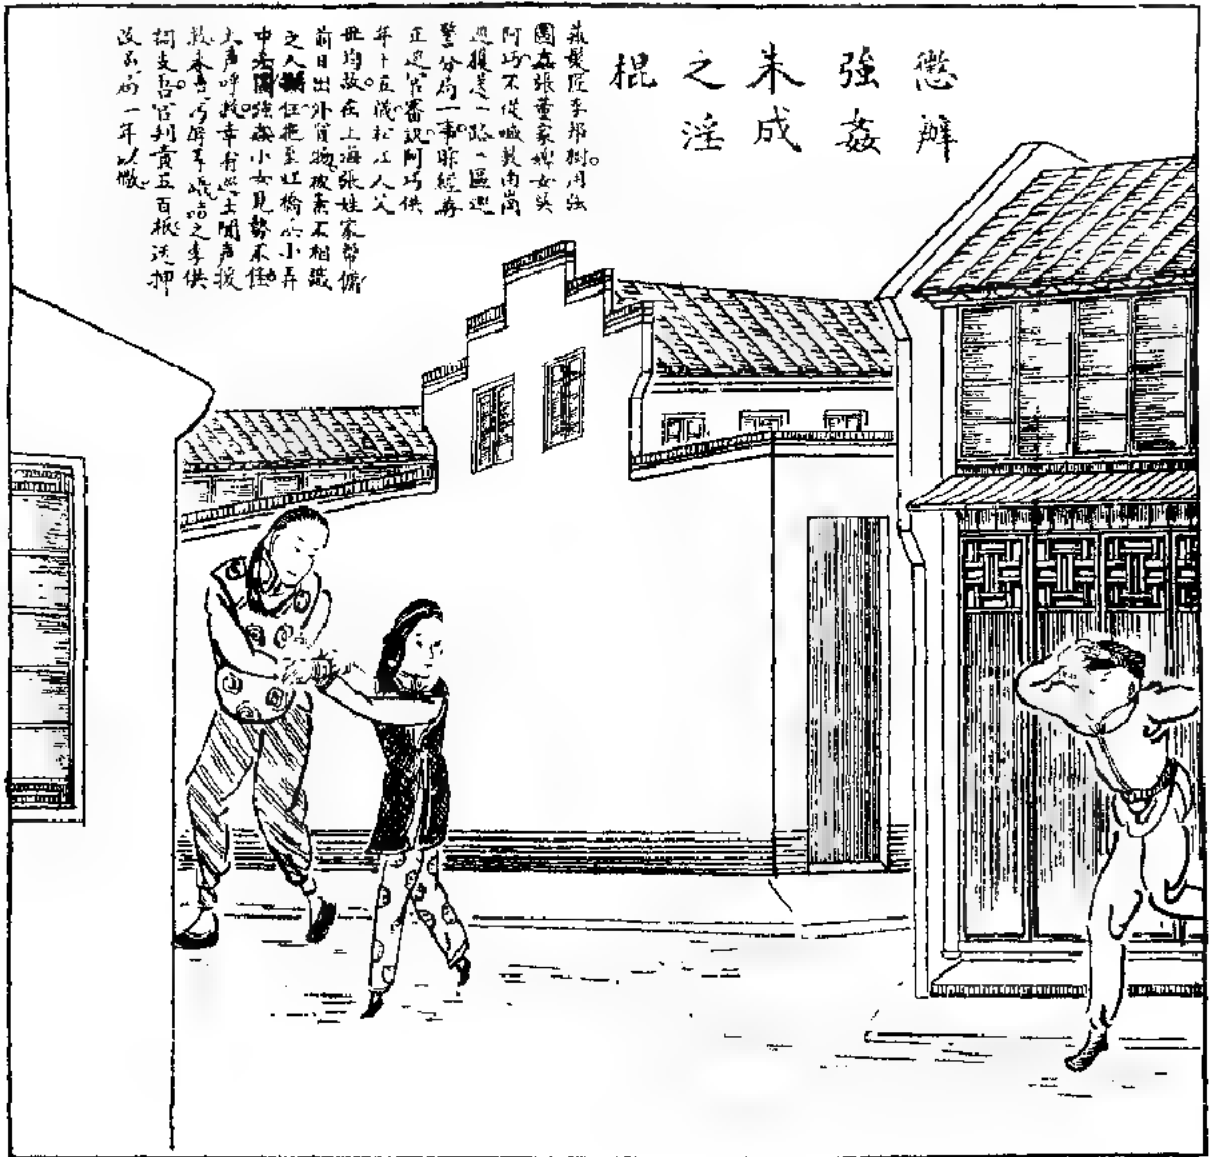 懲辦
強姦
未成
之淫
棍
薙髮匠李邦樹用強
圖姦張董家婢女吳
阿巧不從喊救南崗
巡獲送一路一區巡
警分局一事昨經專
正巡官審訊阿巧供
年十五歲松江人父
母均故在上海張姓家幫傭
前日出外買物被素不相識
之人攔住拖至虹橋小弄
中意圖強姦小女見勢不佳
大声呼救幸有巡士聞声援
救李供
詞支吾官判責五百板送押
改过局一年以儆